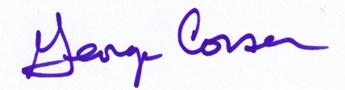 George Corser